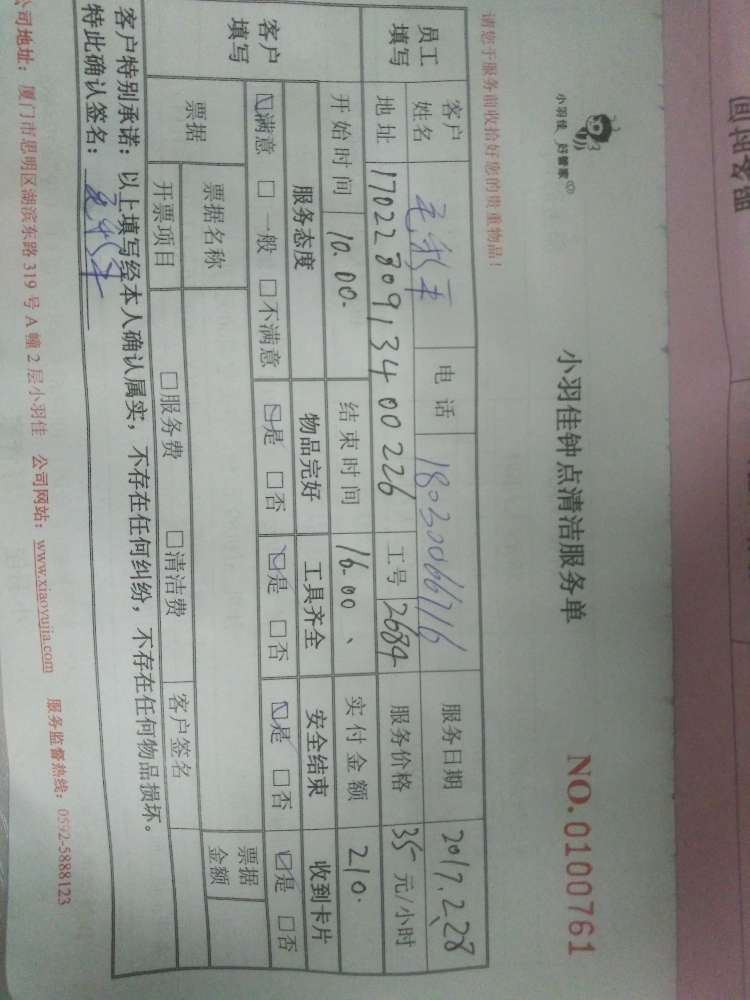 小羽佳 好管家
小羽佳钟点清洁服务单
NO.0100761
请您于服务前收拾好您的贵重物品！
员工填写
客户姓名 电话 18030066716 服务日期 2017.2.28
地址 1702280913400226 工号 2684 服务价格 35 元/小时
开始时间 10.00. 结束时间 16.00、 实付金额 210.
客户填写
服务态度 物品完好 工具齐全 安全结束 收到卡片
☑满意 □一般 □不满意 ☑是 □否 ☑是 □否 ☑是 □否 ☑是 □否
票据 票据名称 票据金额
开票项目 □服务费 □清洁费 客户签名
客户特别承诺：以上填写经本人确认属实，不存在任何纠纷，不存在任何物品损坏。
特此确认签名：
公司地址：厦门市思明区湖滨东路 319 号 A 幢 2 层小羽佳 公司网站：www.xiaoyujia.com 服务监督热线：0592-5888123